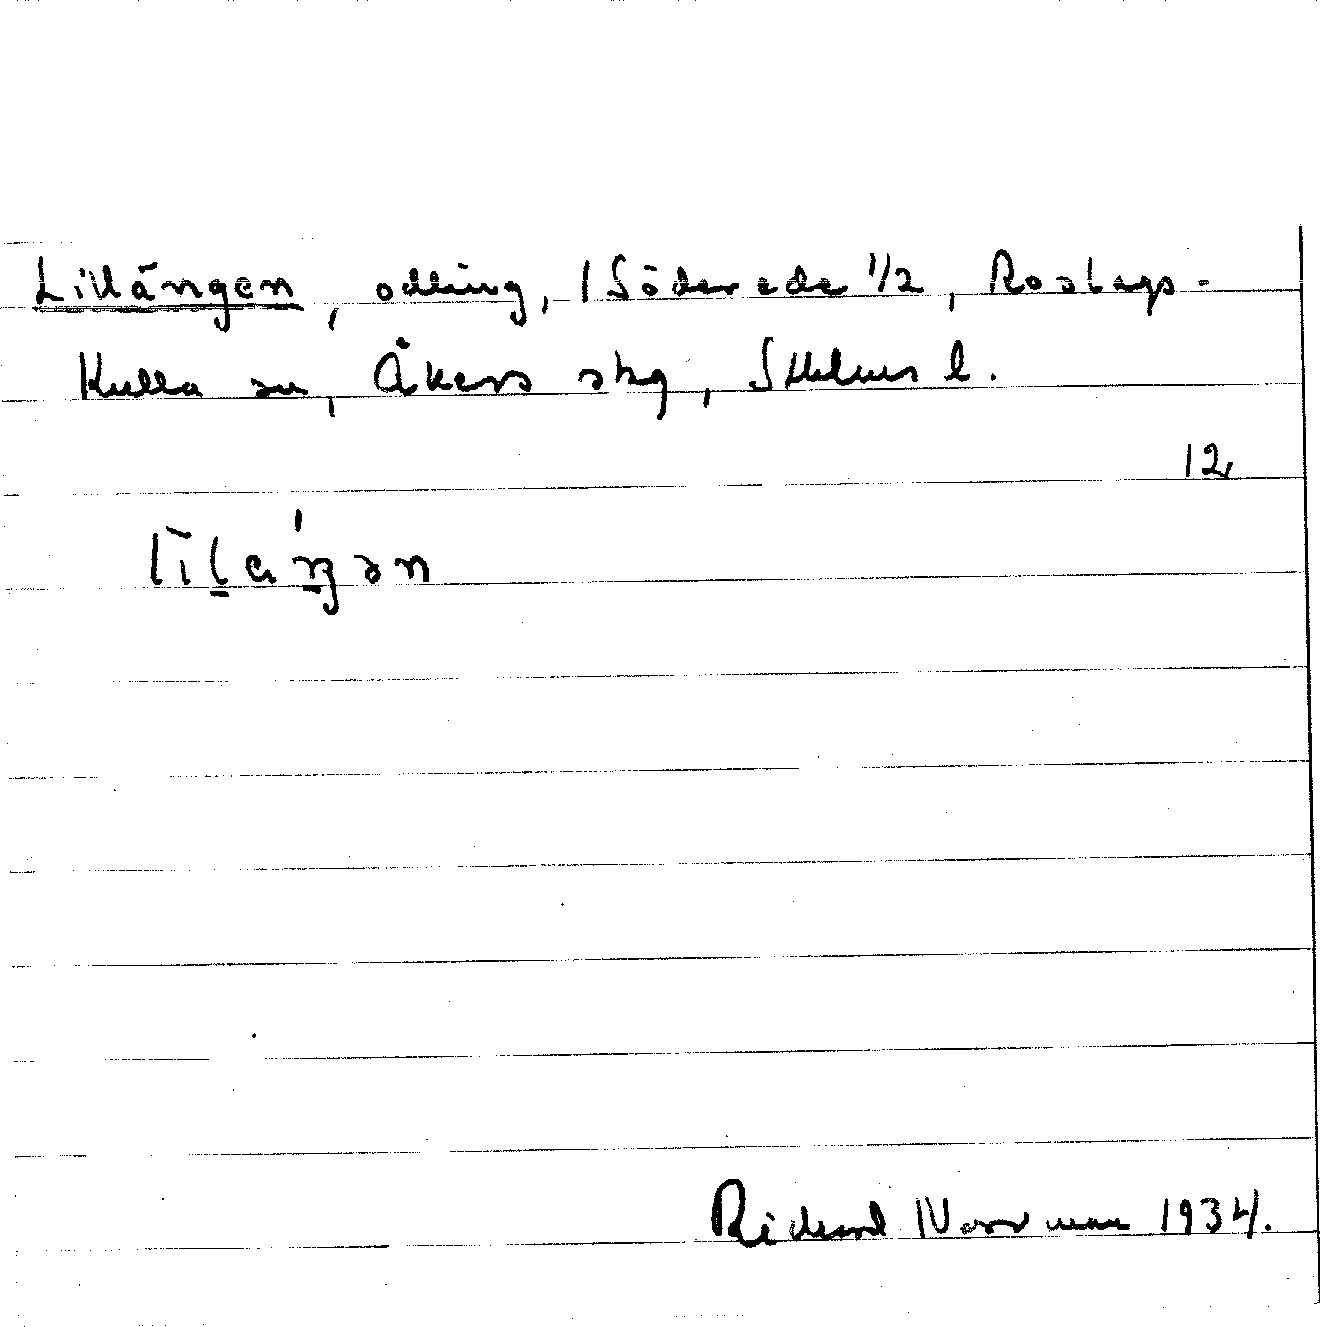 Lillängen, odling, Söderede 1/2, Roslags-
Kulla sn, Åkers skg, Sthlms l.
12,
Richard Norrman 1934.